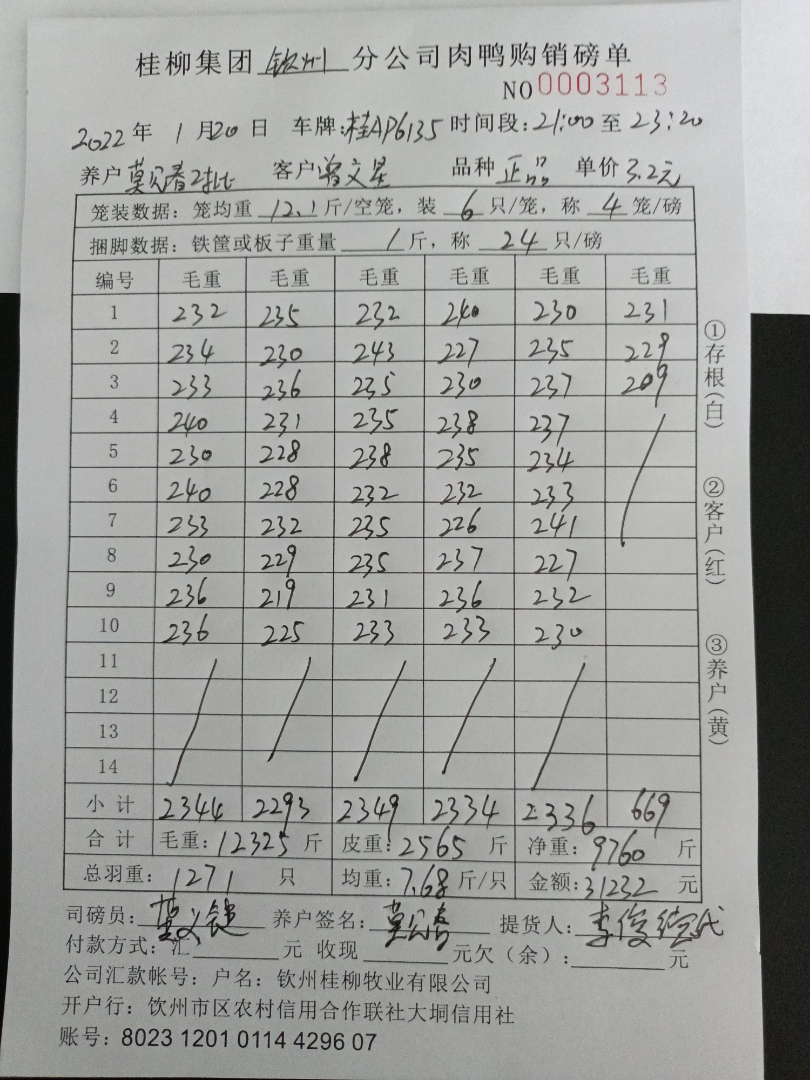 桂柳集团 钦州 分公司肉鸭购销磅单
NO 0003113
2022 年 1 月 20 日 车牌:桂AP6135 时间段:21:00 至 23:20
养户 莫贝春对比 客户 曾文星 品种 正品 单价 3.2元
笼装数据：笼均重 12.1 斤/空笼，装 6 只/笼，称 4 笼/磅
捆脚数据：铁筐或板子重量 1 斤，称 24 只/磅
编号 毛重 毛重 毛重 毛重 毛重 毛重
1 232 235 232 240 230 231
2 234 230 243 227 235 229
3 233 236 235 230 237 209
4 240 231 235 238 237
5 230 228 238 235 234
6 240 228 232 232 233
7 233 232 235 226 241
8 230 229 235 237 227
9 236 219 231 236 232
10 236 225 233 233 230
11
12
13
14
小计 2344 2293 2349 2334 2336 669
合计 毛重：12325 斤 皮重：2565 斤 净重：9760 斤
总羽重：1271 只 均重：7.68 斤/只 金额：31232 元
司磅员： 养户签名：莫贝春 提货人：李俊 代
付款方式：汇 元 收现 元欠（余）： 元
公司汇款帐号：户名：钦州桂柳牧业有限公司
开户行：钦州市区农村信用合作联社大垌信用社
账号：8023 1201 0114 4296 07
①存根(白)
②客户(红)
③养户(黄)